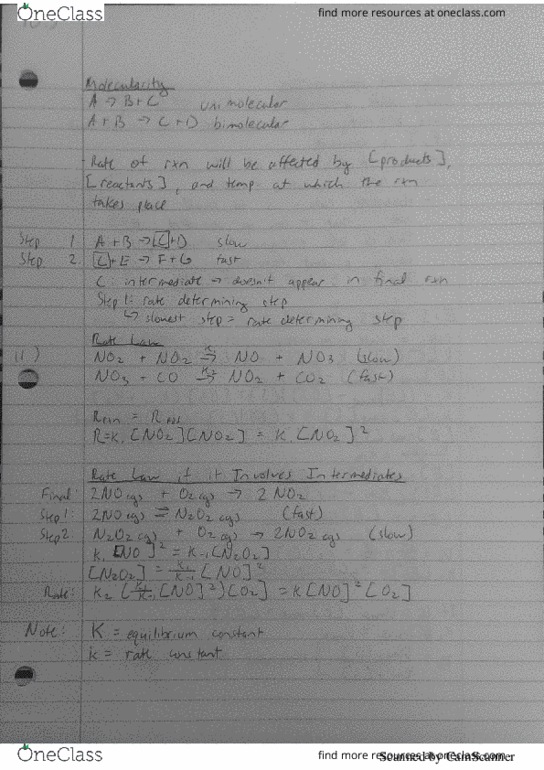 OneClass
find more resources at oneclass.com
Molecularity
A → B + C unimolecular
A + B → C + D bimolecular
Rate of rxn will be affected by [products],
[reactants], and temp at which the rxn
takes place
Step 1 A + B → C + D slow
Step 2. C + E → F + G fast
C: intermediate → doesn't appear in final rxn
Step 1: rate determining step
↳ slowest step = rate determining step
Rate Law
11)
NO2 + NO2 → NO + NO3 (slow)
NO3 + CO → NO2 + CO2 (fast)
R=k1 [NO2][NO2] = k1 [NO2]²
Rate Law if it Involves Intermediates
Final: 2NO(g) + O2(g) → 2 NO2
Step 1: 2NO(g) ⇌ N2O2(g) (fast)
Step 2 N2O2(g) + O2(g) → 2NO2(g) (slow)
k1 [NO]² = k-1[N2O2]
[N2O2] = k1/k-1 [NO]²
Rate: k2 (k1/k-1 [NO]²)[O2] = k[NO]²[O2]
Note: K = equilibrium constant
k = rate constant
OneClass
find more resources at oneclass.com
Scanned by CamScanner